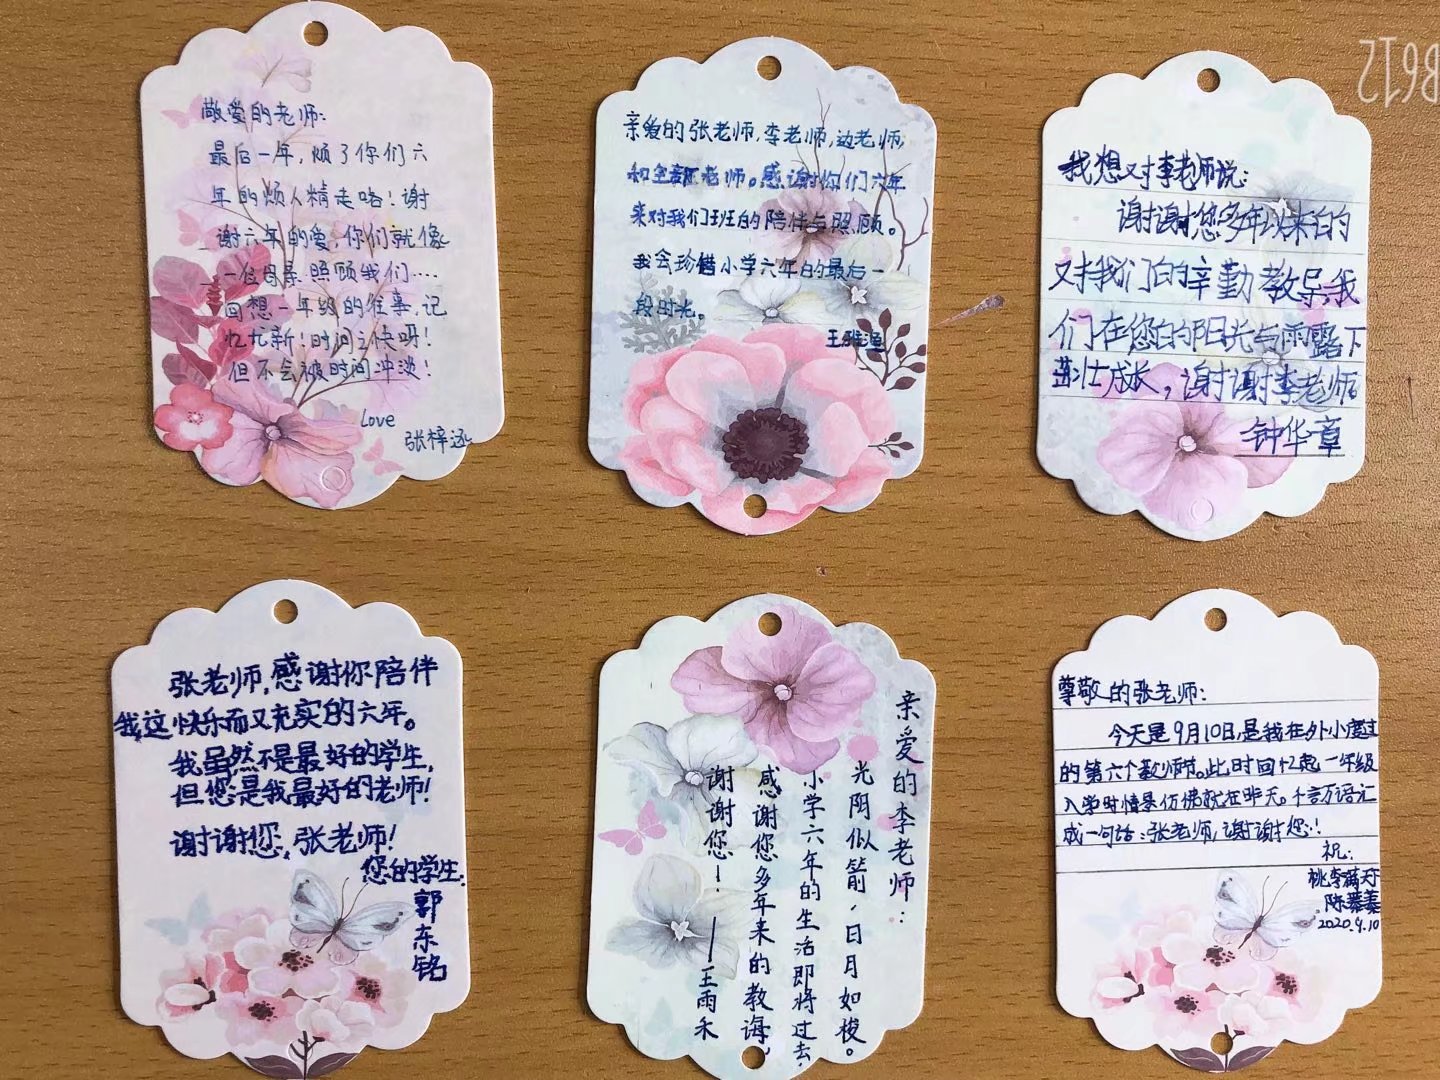 敬爱的老师:
最后一年,烦了你们六
年的烦人精走咯!谢
谢六年的爱,你们就像
一位母亲照顾我们····
回想一年级的往事,记
忆尤新!时间之快呀!
但不会被时间冲淡!
Love
张梓涵
亲爱的张老师,李老师,边老师,
和全新老师。感谢你们六年
来对我们班的陪伴与照顾。
我会珍惜小学六年的最后一
段时光。
王雅
我想对李老师说:
谢谢您多年以来的
对我们的辛勤教导,我
们在您的阳光与雨露下
茁壮成长,谢谢李老师
钟华章
张老师,感谢你陪伴
我这快乐而又充实的六年。
我虽然不是最好的学生,
但您是我最好的老师!
谢谢您,张老师!
您的学生:
郭东铭
亲爱的李老师:
光阴似箭,日月如梭。
小学六年的生活即将过去,
感谢您多年来的教诲,
谢谢您!——王雨禾
尊敬的张老师:
今天是9月10日,是我在外小度过
的第六个教师节。此时回忆起一年级
入学时情景仿佛就在昨天。千言万语汇
成一句话:张老师,谢谢您!
祝:
桃李满天
陈蓁蓁
2020.9.10
B612